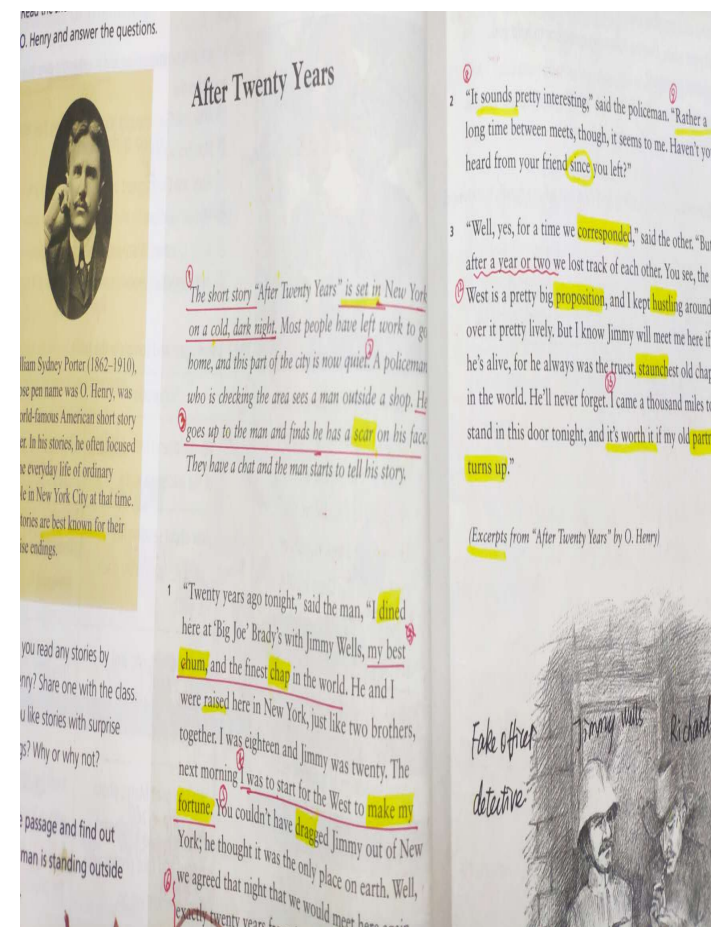 O. Henry and answer the questions.
Sydney Porter (1862–1910),
pen name was O. Henry, was
American short story
In his stories, he often focused
everyday life of ordinary
in New York City at that time.
are best known for their
endings.
you read any stories by
Share one with the class.
like stories with surprise
Why or why not?
passage and find out
man is standing outside
After Twenty Years
The short story "After Twenty Years" is set in New York
on a cold, dark night. Most people have left work to go
home, and this part of the city is now quiet. A policeman
who is checking the area sees a man outside a shop. He
goes up to the man and finds he has a scar on his face.
They have a chat and the man starts to tell his story.
1 "Twenty years ago tonight," said the man, "I dined
here at 'Big Joe' Brady's with Jimmy Wells, my best
chum, and the finest chap in the world. He and I
were raised here in New York, just like two brothers,
together. I was eighteen and Jimmy was twenty. The
next morning I was to start for the West to make my
fortune. You couldn't have dragged Jimmy out of New
York; he thought it was the only place on earth. Well,
we agreed that night that we would meet here again
exactly twenty years
2 "It sounds pretty interesting," said the policeman. "Rather a
long time between meets, though, it seems to me. Haven't
heard from your friend since you left?"
3 "Well, yes, for a time we corresponded," said the other. "But
after a year or two we lost track of each other. You see, the
West is a pretty big proposition, and I kept hustling around
over it pretty lively. But I know Jimmy will meet me here if
he's alive, for he always was the truest, staunchest old chap
in the world. He'll never forget. I came a thousand miles to
stand in this door tonight, and it's worth it if my old
turns up."
(Excerpts from "After Twenty Years" by O. Henry)
Fake officer Jimmy Wells Richard
detective